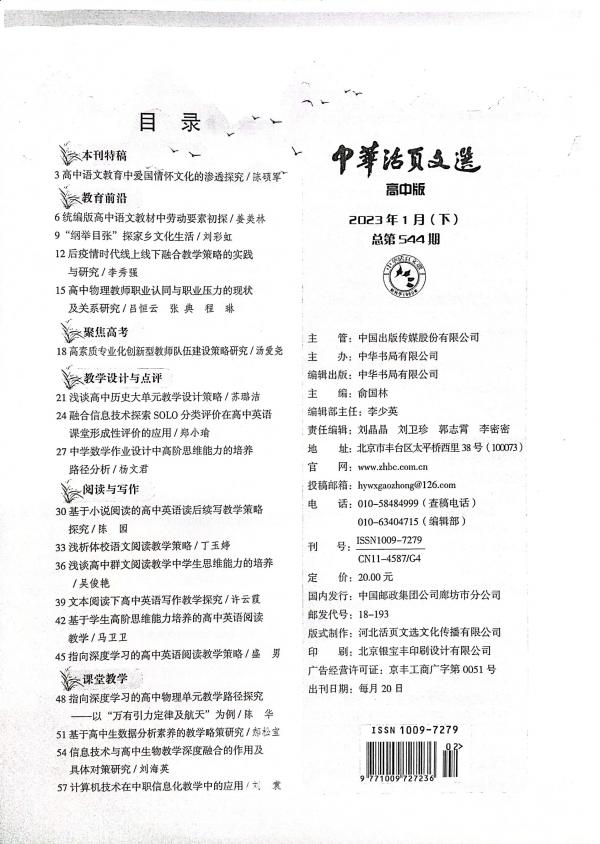 目 录
本刊特稿
3 高中语文教育中爱国情怀文化的渗透探究 / 陈硕军
教育前沿
6 统编版高中语文教材中劳动要素初探 / 姜美林
9 “纲举目张”探家乡文化生活 / 刘彩虹
12 后疫情时代线上线下融合教学策略的实践
与研究 / 李秀强
15 高中物理教师职业认同与职业压力的现状
及关系研究 / 吕恒云 张 典 程 琳
聚焦高考
18 高素质专业化创新型教师队伍建设策略研究 / 汤爱尧
教学设计与点评
21 浅谈高中历史大单元教学设计策略 / 苏璐洁
24 融合信息技术探索 SOLO 分类评价在高中英语
课堂形成性评价的应用 / 郑小瑜
27 中学数学作业设计中高阶思维能力的培养
路径分析 / 杨文君
阅读与写作
30 基于小说阅读的高中英语读后续写教学策略
探究 / 陈 园
33 浅析体校语文阅读教学策略 / 丁玉婷
36 浅谈高中群文阅读教学中学生思维能力的培养
/ 吴俊艳
39 文本阅读下高中英语写作教学探究 / 许云霞
42 基于学生高阶思维能力培养的高中英语阅读
教学 / 马卫卫
45 指向深度学习的高中英语阅读教学策略 / 盛 男
课堂教学
48 指向深度学习的高中物理单元教学路径探究
——以“万有引力定律及航天”为例 / 陈 华
51 基于高中生数据分析素养的教学略策研究 / 郝松宝
54 信息技术与高中生物教学深度融合的作用及
具体对策研究 / 刘海英
57 计算机技术在中职信息化教学中的应用 / 刘
中華活页文選
高中版
2023 年 1 月（下）
总第 544 期
主 管：中国出版传媒股份有限公司
主 办：中华书局有限公司
编辑出版：中华书局有限公司
主 编：俞国林
编辑部主任：李少英
责任编辑：刘晶晶 刘卫珍 郭志霄 李密密
地 址：北京市丰台区太平桥西里 38 号（100073）
官 网：www.zhbc.com.cn
投稿邮箱：hywxgaozhong@126.com
电 话：010-58484999（查稿电话）
010-63404715（编辑部）
刊 号：ISSN1009-7279
CN11-4587/G4
定 价：20.00 元
国内发行：中国邮政集团公司廊坊市分公司
邮发代号：18-193
版式制作：河北活页文选文化传播有限公司
印 刷：北京银宝丰印刷设计有限公司
广告经营许可证：京丰工商广字第 0051 号
出刊日期：每月 20 日
ISSN 1009-7279
02>
9 771009 727236